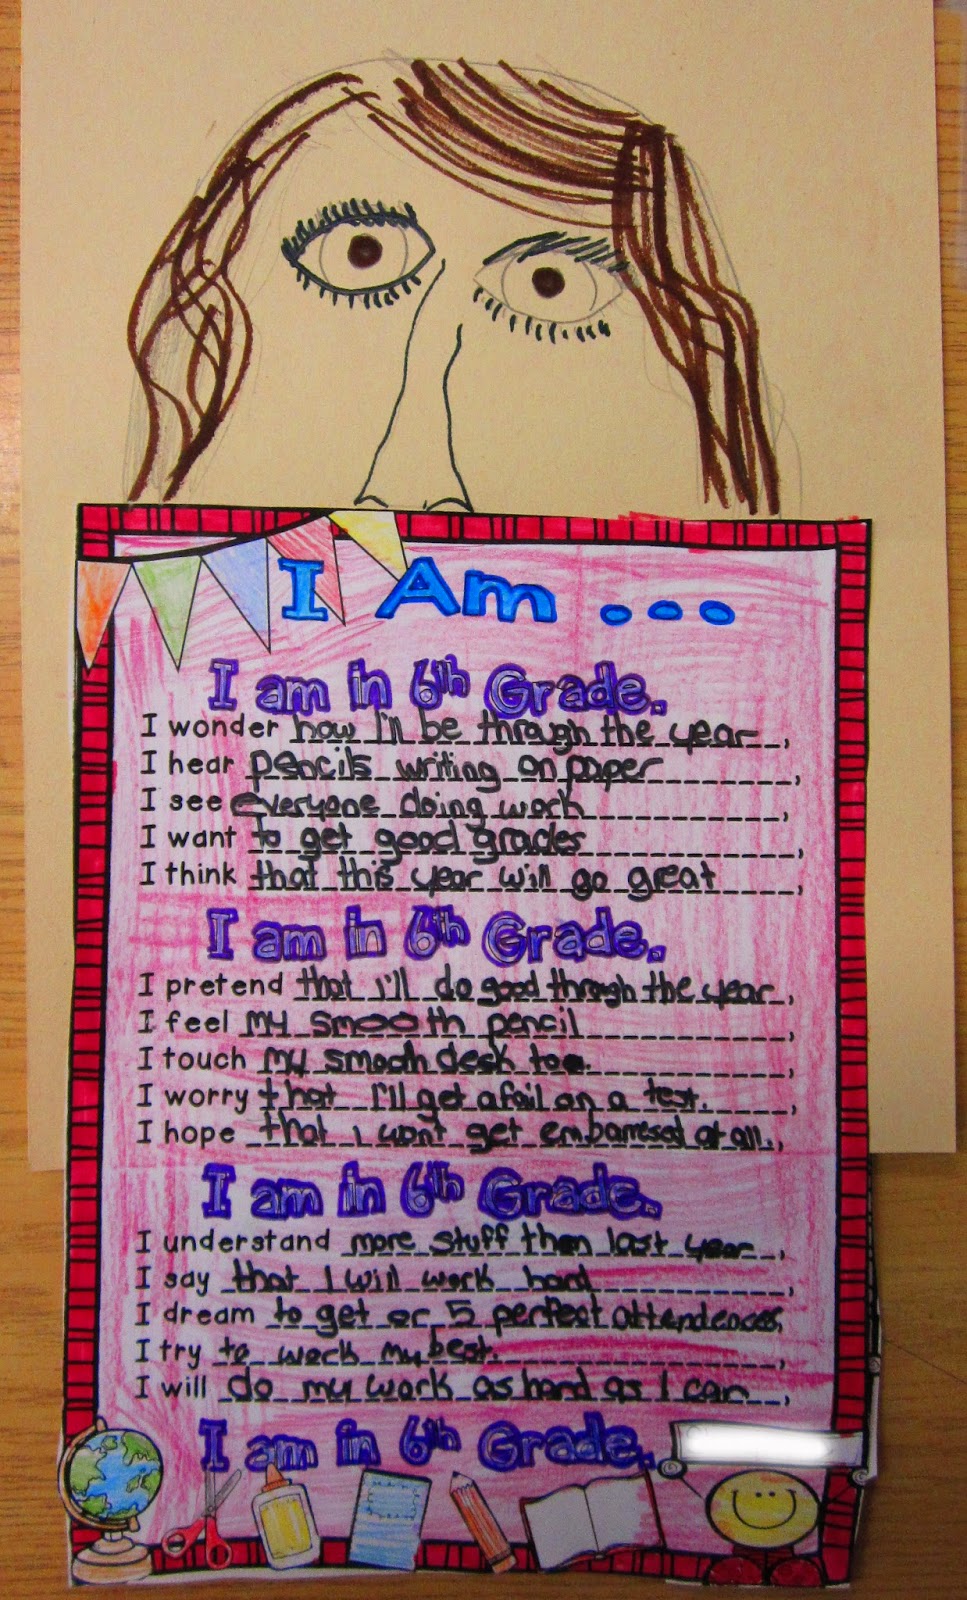 I Am...
I am in 6th Grade.
I wonder how I'll be through the year,
I hear pencils writing on paper,
I see everyone doing work,
I want to get good grades,
I think that this year will go great,
I am in 6th Grade.
I pretend that I'll do good through the year,
I feel my smooth pencil,
I touch my smooth desk too.,
I worry that I'll get a fail on a test.,
I hope that I won't get embarresed at all.,
I am in 6th Grade.
I understand more stuff then last year,
I say that I will work hard,
I dream to get or 5 perfect attendences,
I try to work my best.,
I will do my work as hard as I can,
I am in 6th Grade.